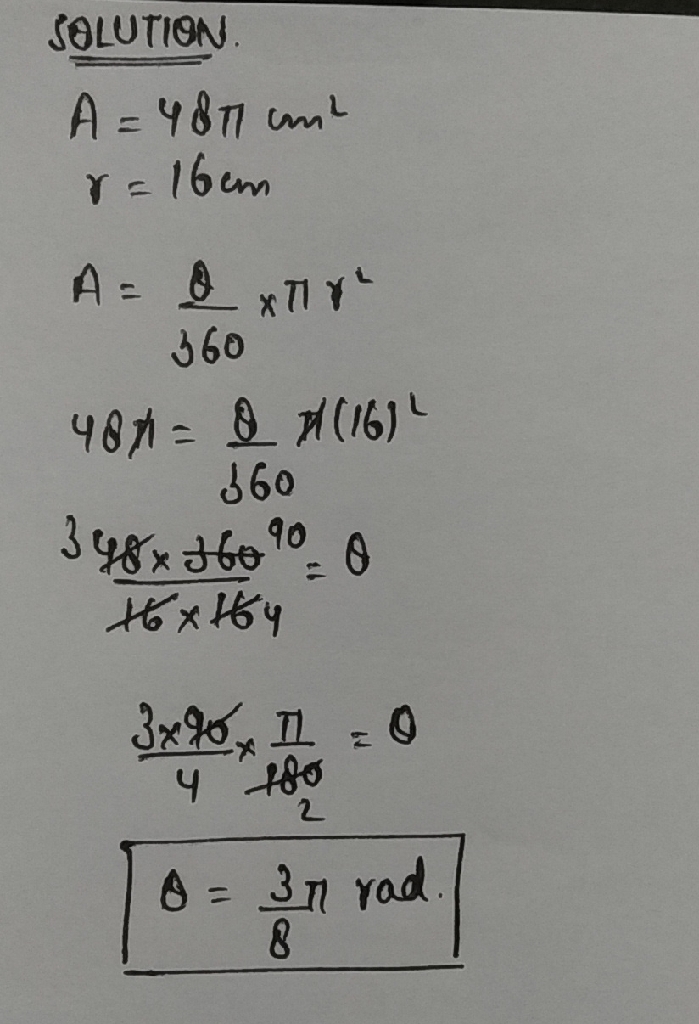 SOLUTION.
A = 48π cm²
r = 16cm
A = θ/360 × π r²
48π = θ/360 π(16)²
3 48 × 360 90 / 16 × 16 4 = θ
3×90/4 × π/180 2 = θ
θ = 3π/8 rad.